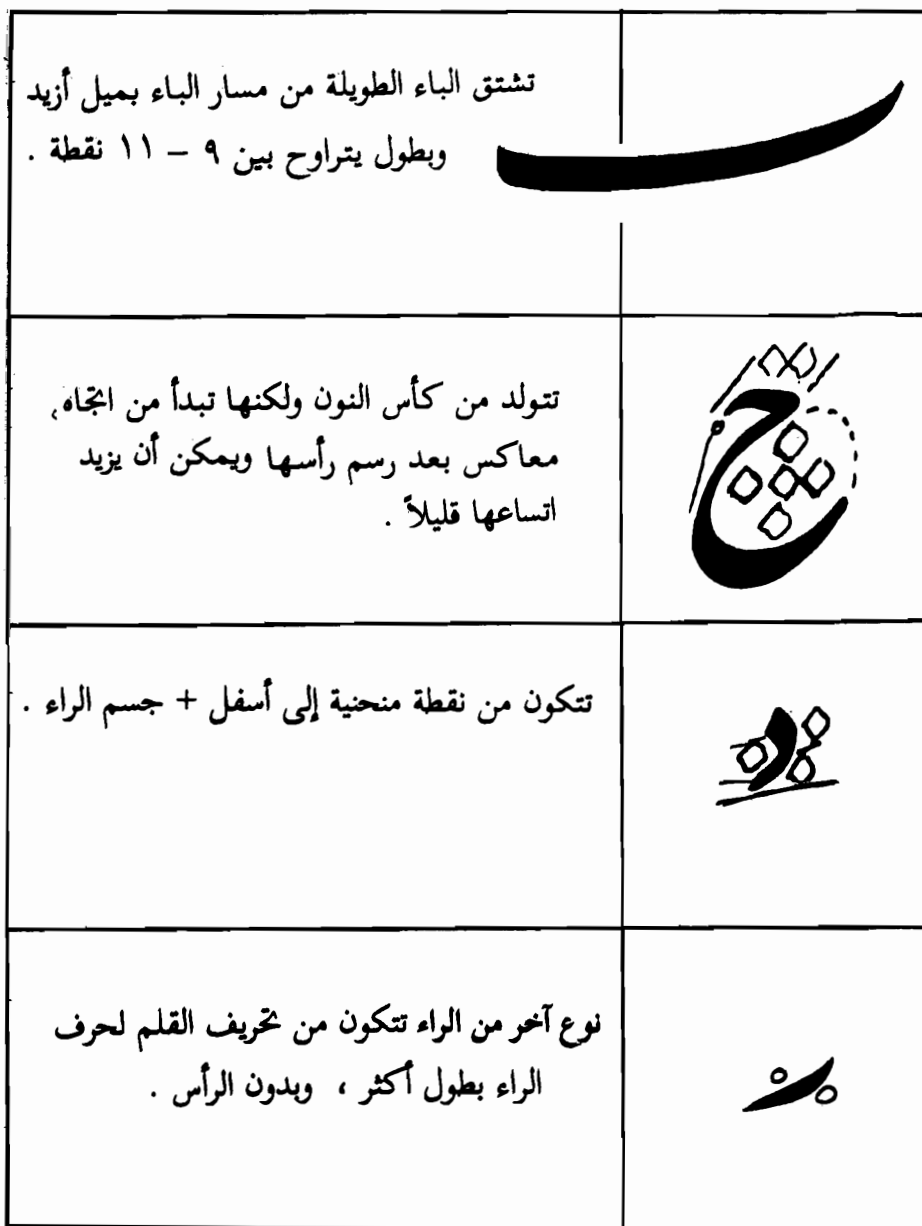 تشتق الباء الطويلة من مسار الباء بميل أزيد
وبطول يتراوح بين ٩ – ١١ نقطة .
تتولد من كأس النون ولكنها تبدأ من اتجاه
معاكس بعد رسم رأسها ويمكن أن يزيد
اتساعها قليلاً .
تتكون من نقطة منحنية إلى أسفل + جسم الراء .
نوع آخر من الراء تتكون من تحريف القلم لحرف
الراء بطول أكثر ، وبدون الرأس .